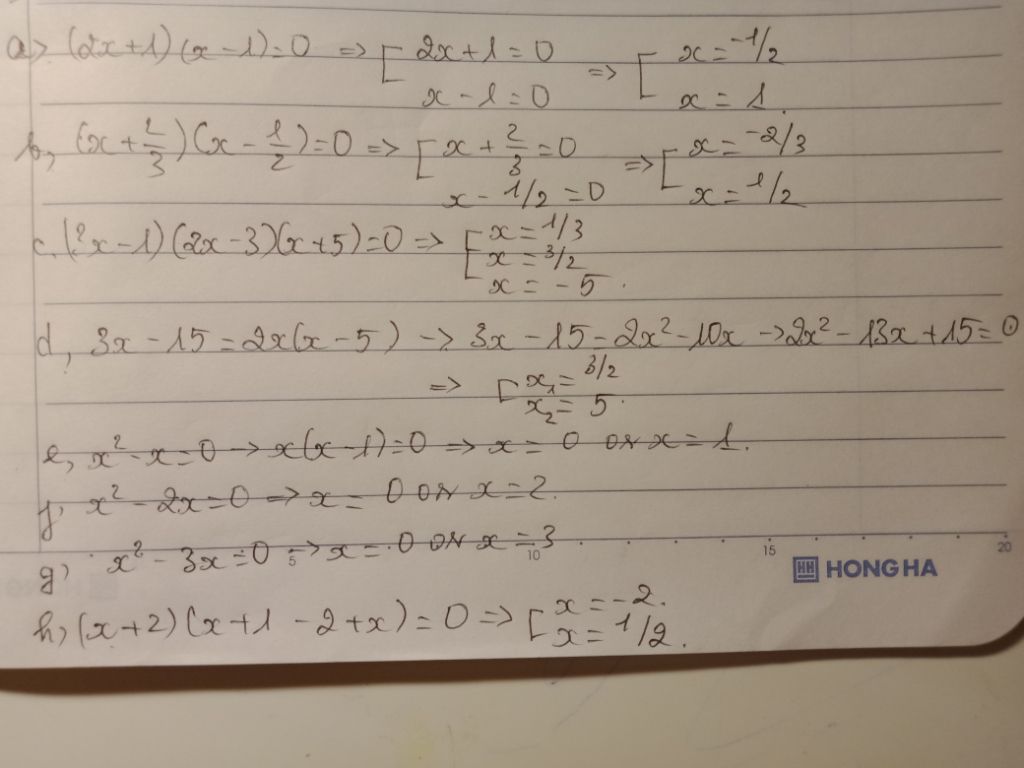 a> (2x+1)(x-1)=0 => [ 2x+1=0 => [ x=-1/2
x-1=0 x=1.
b, (x+2/3)(x-1/2)=0 => [ x+2/3=0 => [ x=-2/3
x-1/2=0 x=1/2
c. (x-1)(2x-3)(x+5)=0 => [ x=1/3
x=3/2
x=-5.
d, 3x-15=2x(x-5) -> 3x-15=2x²-10x ->2x²-13x+15=0
=> [ x₁=3/2
x₂=5.
e, x²-x=0 -> x(x-1)=0 => x=0 or x=1.
f, x²-2x=0 => x=0 or x=2.
g) x²-3x=0 => x=0 or x=3
5 10 15 20
HH HONG HA
h, (x+2)(x+1-2+x)=0 => [ x=-2.
x=1/2.